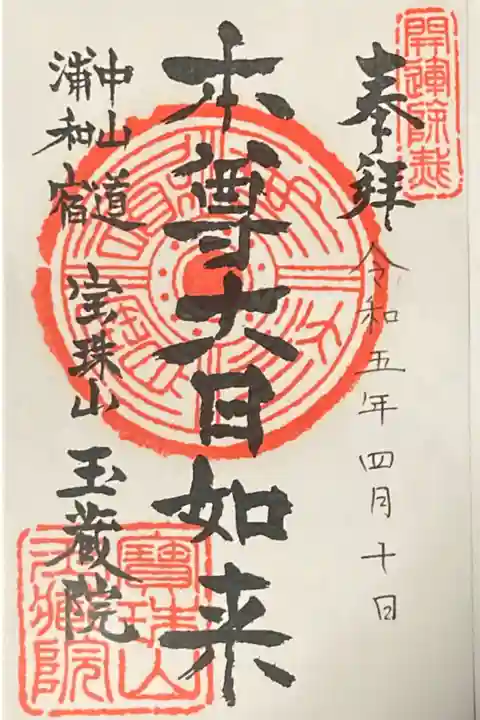 開運除災
奉拝
令和五年四月十日
本尊大日如来
中山道
浦和宿
宝珠山 玉蔵院
寶珠山
玉蔵院